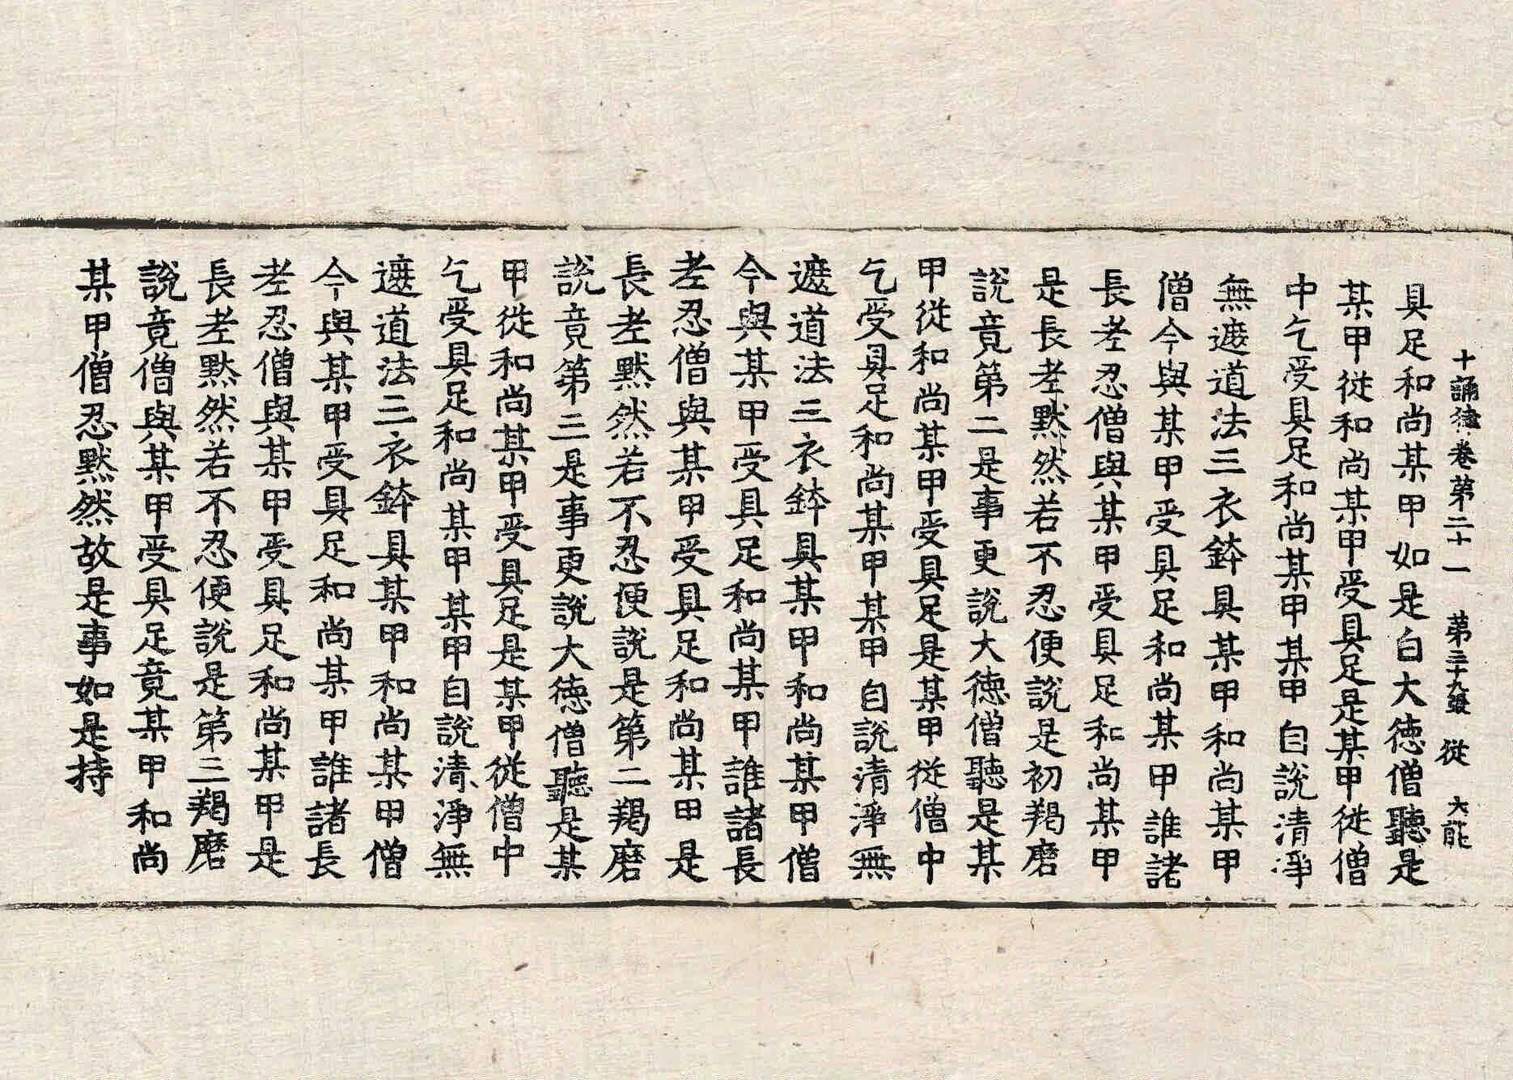 十誦律卷第二十一 第三十九張 従 大能
具足和尚某甲如是白大徳僧聽是
某甲従和尚某甲受具足是某甲従僧
中乞受具足和尚某甲某甲自説清淨
無遮道法三衣鉢具某甲和尚某甲
僧今與某甲受具足和尚某甲誰諸
長老忍僧與某甲受具足和尚某甲
是長老黙然若不忍便説是初羯磨
説竟第二是事更説大徳僧聽是某
甲従和尚某甲受具足是某甲従僧中
乞受具足和尚某甲某甲自説清淨無
遮道法三衣鉢具某甲和尚某甲僧
今與某甲受具足和尚某甲誰諸長
老忍僧與某甲受具足和尚某甲是
長老黙然若不忍便説是第二羯磨
説竟第三是事更説大徳僧聽是某
甲従和尚某甲受具足是某甲従僧中
乞受具足和尚某甲某甲自説清淨無
遮道法三衣鉢具某甲和尚某甲僧
今與某甲受具足和尚某甲誰諸長
老忍僧與某甲受具足和尚某甲是
長老黙然若不忍便説是第三羯磨
説竟僧與某甲受具足竟某甲和尚
某甲僧忍黙然故是事如是持